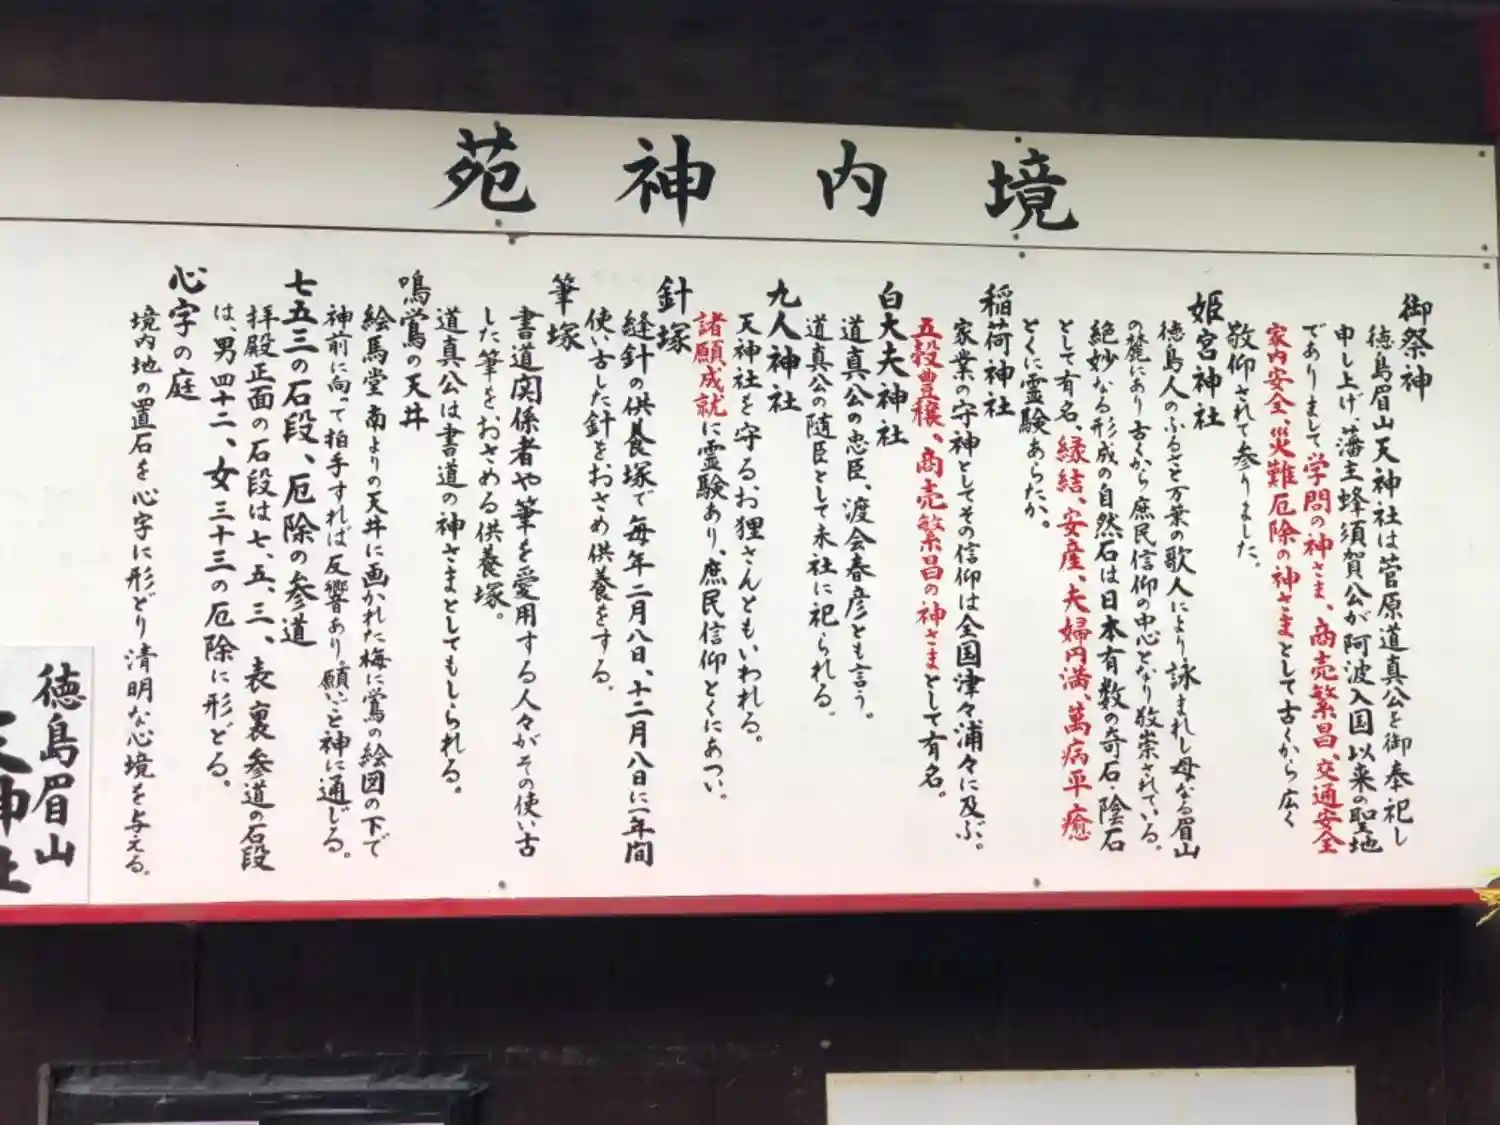 境内神苑
御祭神
徳島眉山天神社は菅原道真公を御奉祀し
申し上げ、藩主蜂須賀公が阿波入国以来の聖地
でありまして学問の神さま、商売繁昌、交通安全
家内安全、災難厄除の神さまとして古くから広く
敬仰されて参りました。
姫宮神社
徳島人のふるさと万葉の歌人により詠まれし母なる眉山
の麓にあり古くから庶民信仰の中心となり敬崇されている。
絶妙なる形成の自然石は日本有数の奇石・陰石
として有名、縁結、安産、夫婦円満、萬病平癒
とくに霊験あらたか。
稲荷神社
家業の守神としてその信仰は全国津々浦々に及ぶ。
五穀豊穣、商売繁昌の神さまとして有名。
白大夫神社
道真公の忠臣、渡会春彦とも言う。
道真公の随臣として末社に祀られる。
九人神社
天神社を守る、お狸さんともいわれる。
諸願成就に霊験あり、庶民信仰とくにあつい。
針塚
縫針の供養塚で毎年二月八日、十二月八日に一年間
使い古した針をおさめ供養をする。
筆塚
書道関係者や筆を愛用する人々がその使い古
した筆を、おさめる供養塚。
道真公は書道の神さまとしてもしられる。
鳴鴬の天井
絵馬堂南よりの天井に画かれた梅に鴬の絵図の下で
神前に向って拍手すれば反響あり。願いごと神に通じる。
七五三の石段、厄除の参道
拝殿正面の石段は七、五、三、表裏参道の石段
は、男四十二、女三十三の厄除に形どる。
心字の庭
境内地の置石を心字に形どり清明な心境を与える。
徳島眉山
天神社